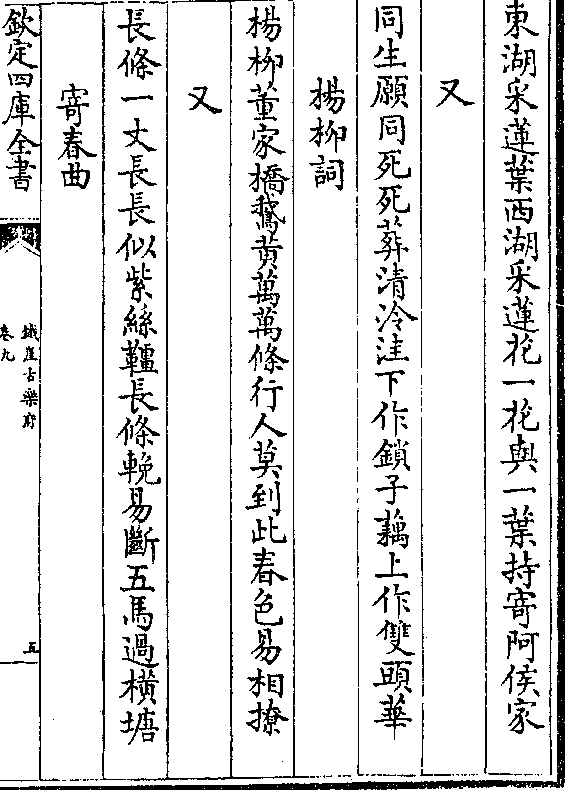 東湖采蓮葉西湖采蓮花一花與一葉持寄阿侯家
又
同生願同死死葬清泠洼下作鎖子藕上作雙頭華
楊柳詞
楊柳董家橋鵞黄萬萬條行人莫到此春色易相撩
又
長條一丈長長似紫絲韁長條輓易斷五馬過橫塘
寄春曲
欽定四庫全書
鐵崖古樂府
卷九
五